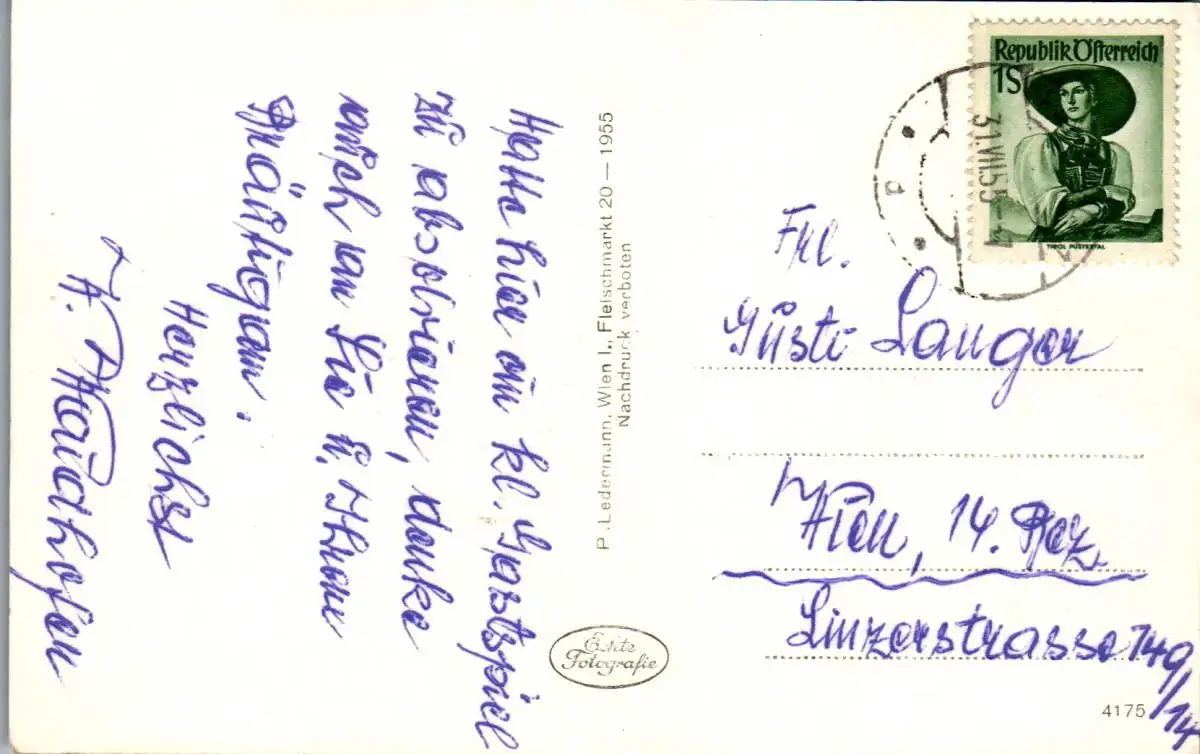 Hatte hier ein kl. Gastspiel
zu absolvieren, denke
auch an Sie u. Ihrem
Bräutigam.
Herzlichst
P. Ledermann, Wien I., Fleischmarkt 20 — 1955
Nachdruck verboten
Echte
Fotografie
Republik Österreich
1S
TIROL PUSTERTAL
31.VII.55
d
Frl.
Gusti Langer
Wien, 14. Bez.
Linzerstrasse 149/14
4175